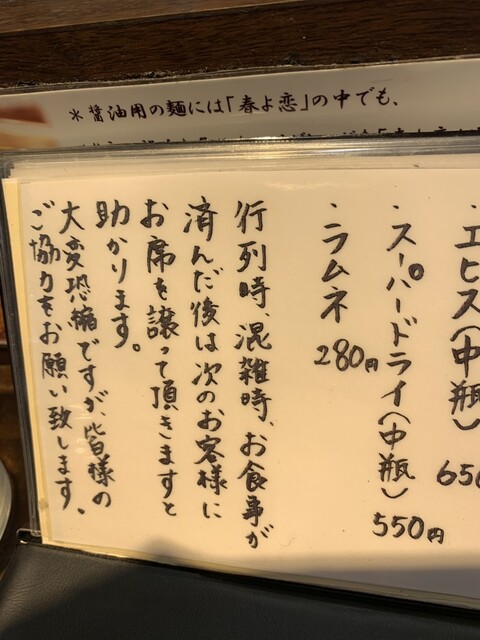 ＊醤油用の麺には「春よ恋」の中でも、
・エビス(中瓶) 650
・スーパードライ(中瓶) 550円
・ラムネ 280円
行列時、混雑時、お食事が
済んだ後は次のお客様に
お席を譲って頂きますと
助かります。
大変恐縮ですが、皆様の
ご協力をお願い致します。